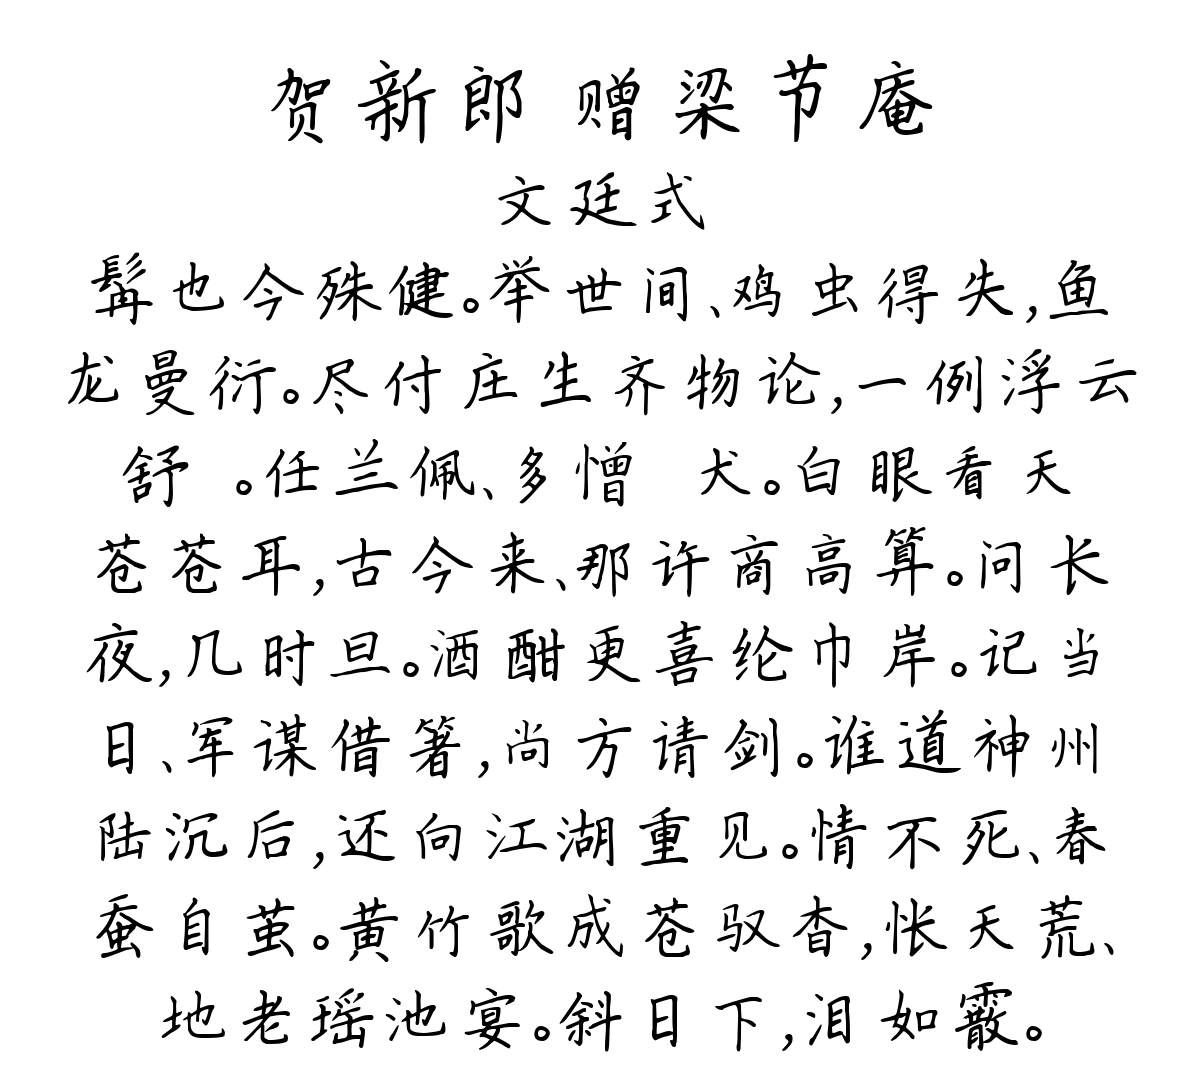 贺新郎 赠梁节庵
文廷式
髯也今殊健。举世间、鸡虫得失,鱼
龙曼衍。尽付庄生齐物论,一例浮云
舒 。任兰佩、多憎 犬。白眼看天
苍苍耳,古今来、那许商高算。问长
夜,几时旦。酒酣更喜纶巾岸。记当
日、军谋借箸,尚方请剑。谁道神州
陆沉后,还向江湖重见。情不死、春
蚕自茧。黄竹歌成苍驭杳,怅天荒、
地老瑶池宴。斜日下,泪如霰。